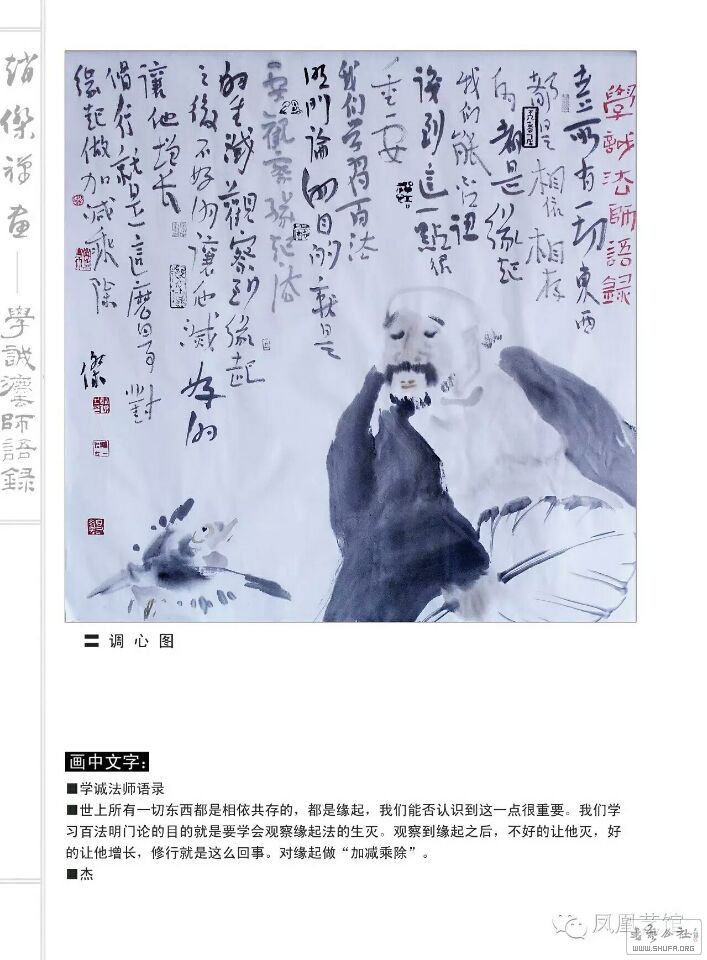 趙傑禪畫——學誠灋師語錄
學誠法師語錄
所有一切東西
都是相依相存
的都是緣起
我们能否認
識到這一點很
重要
我们学習百法
明門論的目的就是
要觀察緣起法
的生滅觀察到緣起
之後不好的讓他滅好的
讓他增长
修行就是這麼回事對
緣起做加减乘除
傑
〓 调心图
画中文字：
■学诚法师语录
■世上所有一切东西都是相依共存的，都是缘起，我们能否认识到这一点很重要。我们学
习百法明门论的目的就是要学会观察缘起法的生灭。观察到缘起之后，不好的让他灭，好
的让他增长，修行就是这么回事。对缘起做“加减乘除”。
■杰
凤凰艺馆
书艺公社
WWW.SHUFA.ORG